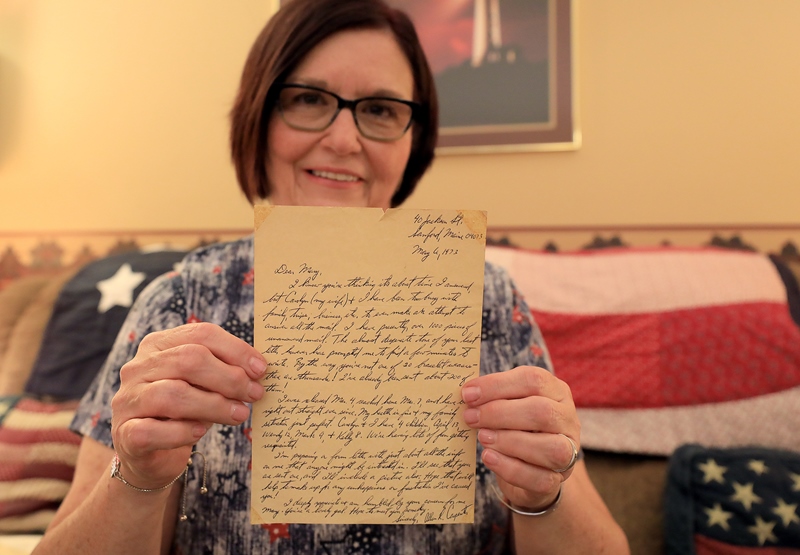 90 Jackson St.
Sanford, Maine 04073
May 6, 1973
Dear Mary,
I know you're thinking it's about time I answered
but Carolyn (my wife) & I have been too busy with
family, trips, business, etc. to even make an attempt to
answer all the mail. I have presently over 1000 pieces of
unanswered mail. The almost desperate tone of your last
letter however has prompted me to find a few minutes to
write. By the way, you're not one of 20 bracelet wearers
there are thousands! I've already been sent about 200 of
them!
I was released Mar. 4, reached here Mar. 7, and have been
right out straight ever since. My health is fine & my family
situation just perfect. Carolyn & I have 4 children, April 13,
Wendy 12, Mark 9, & Kelly 8. We're having lots of fun getting
reacquainted.
I'm preparing a form letter with just about all the info
in one that anyone might be interested in. I'll see that you
are sent one and I'll include a picture also. Hope that will
help to make up for any unhappiness or frustration I've caused
you!
I deeply appreciate and am humbled by your concern for me
Mary. You're a lovely gal. Hope to meet you someday.
Sincerely, Allen R. Carpenter